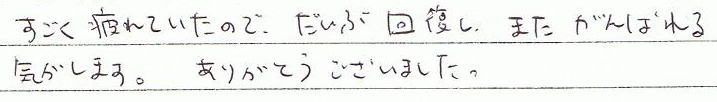 すごく疲れていたので、だいぶ回復し、またがんばれる
気がします。 ありがとうございました。